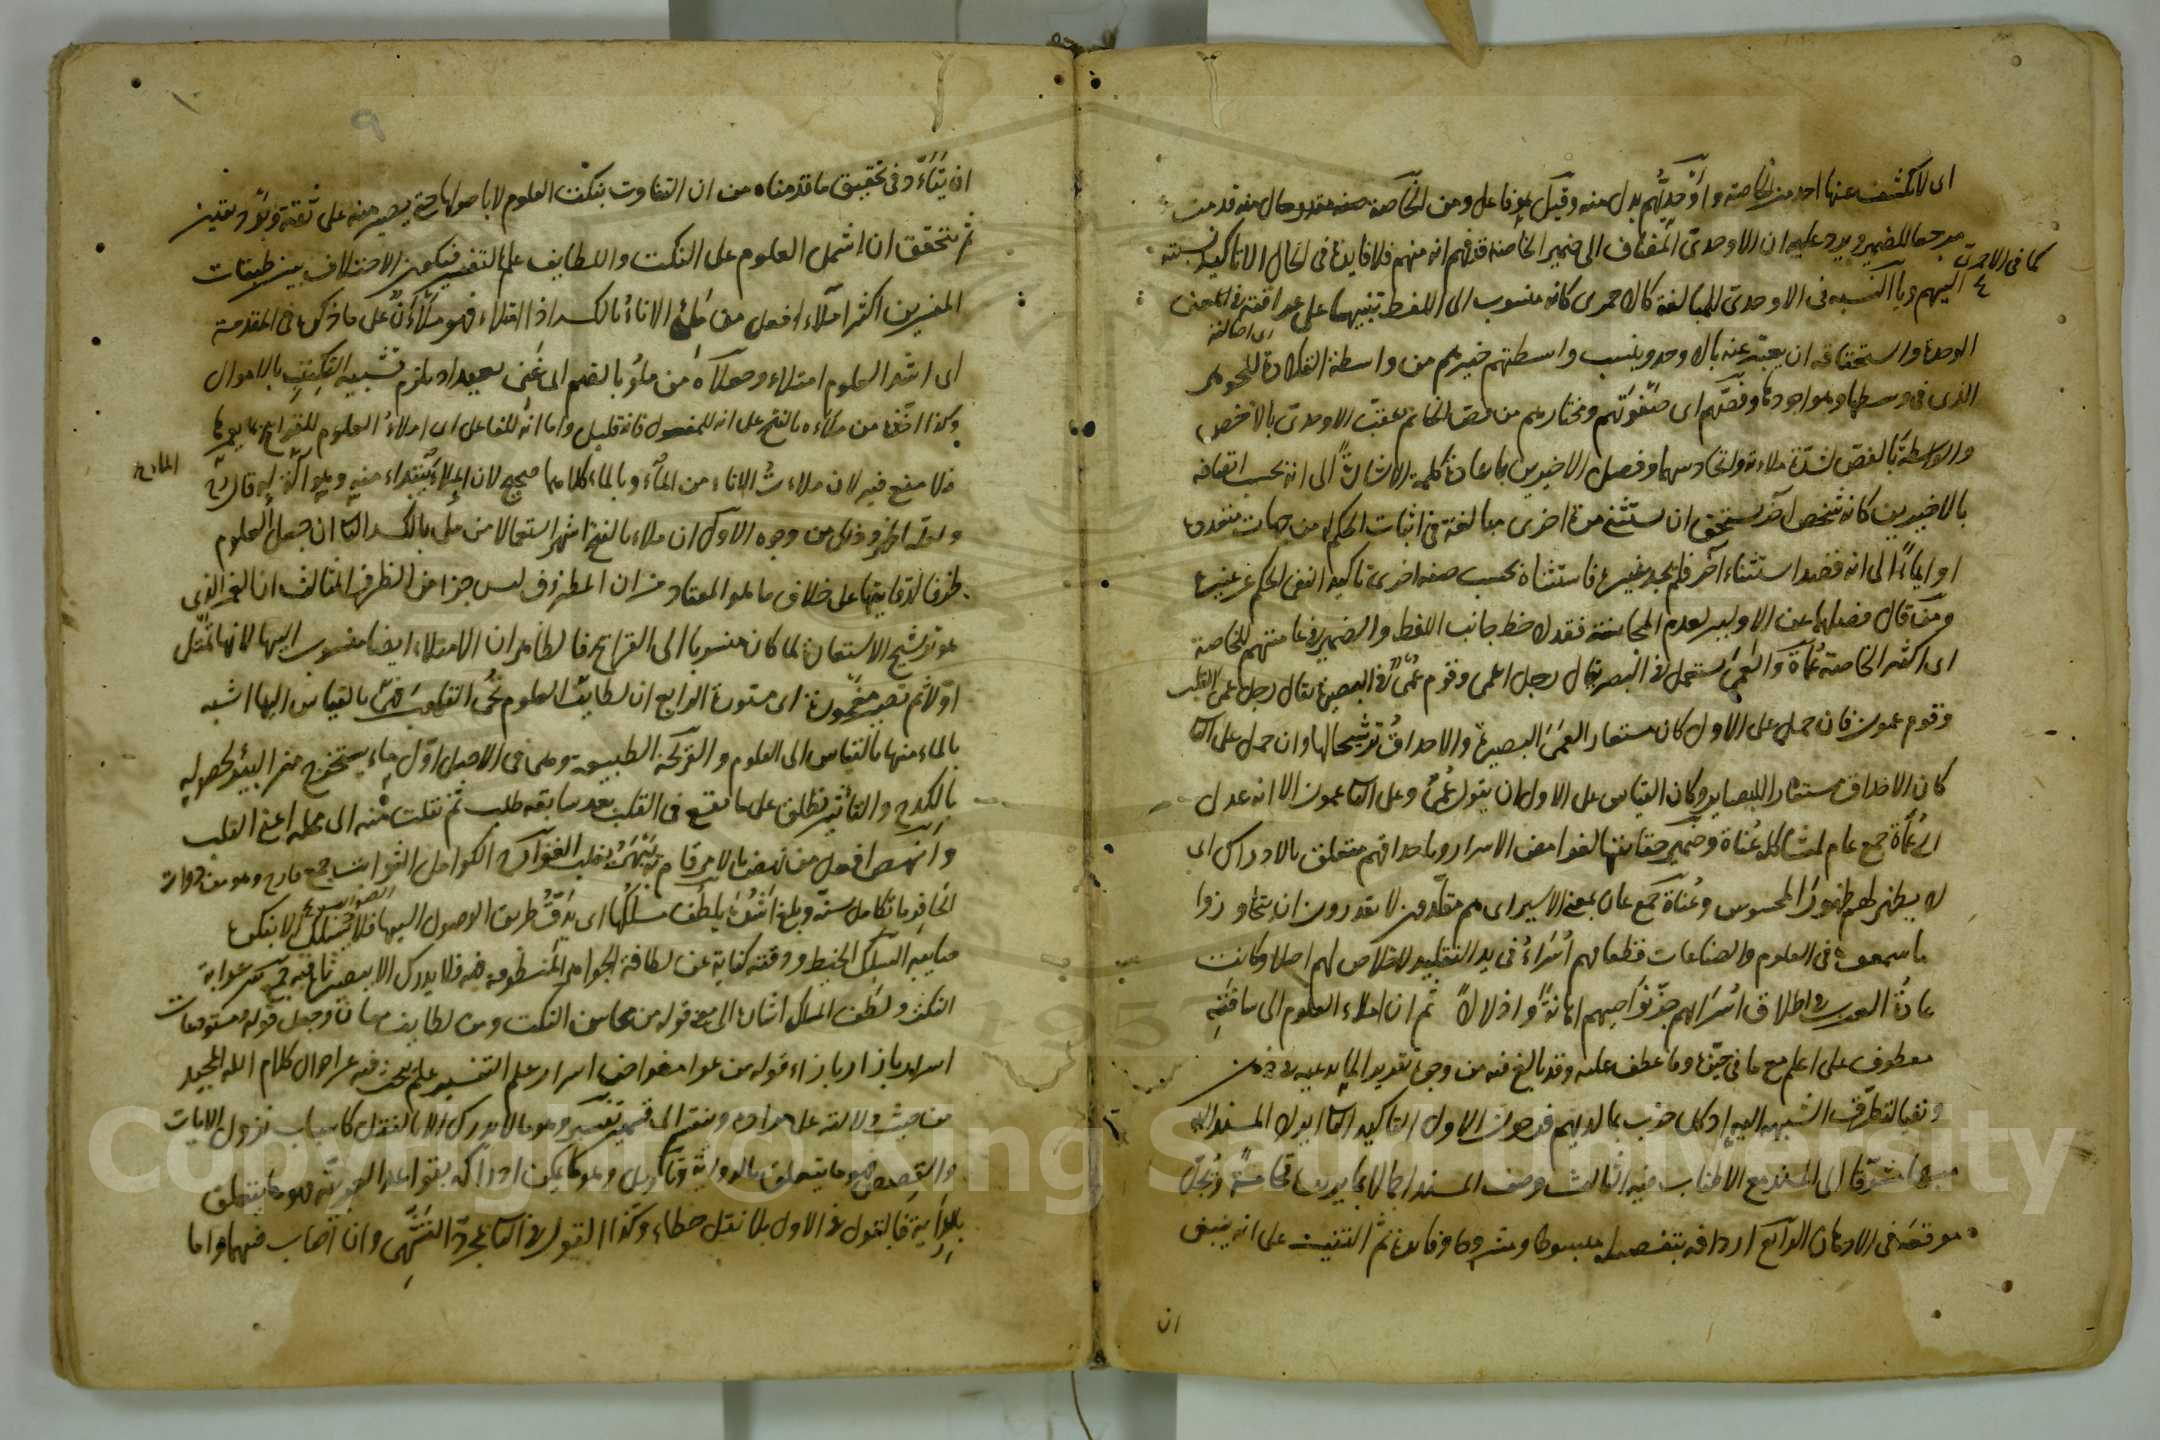 اى لا يكشف عنها احد من الخاصة واوحديهم بدل منه وقيل هو فاعل ومن الخاصة حال منه قدمت
مرجعا للضمير ويرد عليه ان الاوحدى المضاف الى ضمير الخاصة قد فهم انه منهم فلا فايدة فى الحال الا تاكيد نسبته
كما فى الاحمرى
اليهم ويا النسبة فى الاوحدى للمبالغة كالاحمرى كانه منسوب الى اللفظ تنبيها على عراقته فى معنى
اى اصالته
الوحدة واستحقاقه ان يعبر عنه بالاوحد وينسب واسطتهم خيرهم من واسطة القلادة للجوهر
الذى فى وسطها وهو اجودها وفصهم اى صفوتهم ومختارهم من فص الخاتم عقب الاوحدى بالاخص
والواسطة بالفص لشدة ملاءمة واتحاد بينهما وفصل الاخيرين باعادة كلمة الا اشارة الى انه بحسب اتصافه
بالاخيرين كانه شخص آخر يستحق ان يستثنى مرة اخرى مبالغة فى اثبات الحكم له من جهات متعددة
او ايماءً الى انه قصد استثناء آخر فلم يجد غيره فاستثناه بحسب صفة اخرى تاكيدا لنفى الحكم عن غيره
ومن قال فصلها عن الاوليين لعدم المجانسة فقد لاحظ جانب اللفظ والضمير فى عامتهم للخاصة
اى اكثر الخاصة عماة والعمى يستعمل فى البصر يقال رجل اعمى وقوم عمى وفى البصيرة يقال رجل عمى القلب
وقوم عمون فان حمل على الاول كان مستعارا لعمى البصيرة والاحداق ترشيحا لها وان حمل على الثا
كان الاحداق مستعارا للبصاير وكان القياس على الاول ان يقول عمى وعلى الثا عمون الا انه عدل
الى عماة جمع عام لمشاكلة عناة وضمير حقايقها لغوامض الاسرار وباحداقهم متعلق بالادراك اى
لا يظهر لهم ظهور المحسوس وعناة جمع عان بمعنى الاسير اى هم مقلدون لا يقدرون ان يتجاوزوا
ما سمعوه فى العلوم والصناعات فكانهم اسراء فى يد التقليد لا خلاص لهم اصلا وكانت
عادة العرب فى اطلاق اسرائهم جز نواصيهم اهانة واذلالا ثم ان املاء العلوم الى ساقته
معطوف على اعلم مع ما فى حيزه وما عطف عليه وقد بالغ فيه من وجوه تقريرا لما يدعيه فى ذهن
ونفيا لتطرق الشبهة اليه اذ كل حزب بما لديهم فرحون الاول التاكيد الثا ايراد المسند اليه
مبهما مشوقا الى المسند مع الاطناب فيه الثالث وصف المسند اجمالا بما يزيده فخامة ويجل
موقعه فى الاذهان الرابع اردافه بتفصيل مبسوط ومشروط وفايدة ثم التنبيه على انه ينبغى
ان
٩
ان يتأد فى تحقيق ما قدمناه من ان التفاوت بنكت العلوم لا باصولها حتى يصير منه على ثقة ويؤد يقين
ثم يتحقق ان اشمل العلوم على النكت واللطايف علم التفسير فيكون الاختلاف بين طبقات
المفسرين اكثر املاء افعل من ملئ الاناء بالكسر اذا امتلاء فهو ملآن على ما ذكره فى المقدمة
اى اشد العلوم امتلاء وجعلاه من ملؤ بالضم الى غنى بعيد اذ يلزم تشبيه النكت بالاموال
وكذا اخذه من ملاءه بالفتح على انه للمفعول فانه قليل واما انه للفاعل اى املاء العلوم للقرايح بما يغمرها
الماء
فلا منع فيه لان ملاءت الاناء من الماء وبالماء كلاهما صحيح لان الملاء يبتداء منه وهو آلة له قال
وقوله اظهر وذلك من وجوه الاول ان ملاء بالفتح اشهر استعمالا من ملى بالكسر الثا ان جعل العلوم
ظرفا لدقايقها على خلاف ما هو المعتاد من ان المظروف ليس جزا من الظرف الثالث ان الغمر الذى
هو ترشيح الاستعارة لما كان منسوبا الى القرايح فالظاهر ان الامتلاء ايضا منسوب اليها لانها تمتل
اولا ثم تصير مغمورة اى مستورة الرابع ان لطايف العلوم نحى القلوب فهى بالقياس اليها اشبه
بالماء منها بالقياس الى العلوم والقريحة الطبيعة وهى فى الاصل اول ماء يستخرج من البئر لحصوله
بالكدح والتأثير تطلق على ما يقع فى القلب بعد سابقة طلب ثم نقلت منه الى محله اعنى القلب
وانهض افعل من نهض بالامر قام به ينهض الكوامل القوارح جمع قارح وهو من ذوات
الحافر ما تكامل سنه وبلغ اشده يلطف مسلكها اى يدق طريق الوصول اليها فلا يسلك الا بفكر
صايب السلك الخيط ودقته كناية عن لطافة الجواهر المنظومة فيه فلا يدركه الا بصر ثاقب غرابة
النكت ولطف المسلك اشارة الى قوله من محاسن النكت ومن لطايف معان وجعل قوله مستودعات
اسرار بازاء قوله من غوامض اسرار علم التفسير علم يبحث فيه عن احوال كلام الله المجيد
من حيث دلالته على مراده وينقسم الى قسمين تفسير وهو ما لا يدرك الا بالنقل كاسباب نزول الايات
والقصص فهو ما يتعلق بالرواية وتاويل وهو ما يمكن ادراكه بقواعد العربية فهو ما يتعلق
بالدراية فالقول فى الاول بلا نقل خطاء وكذا القول فى الثا بمجرد التشهى وان اصاب فيهما واما